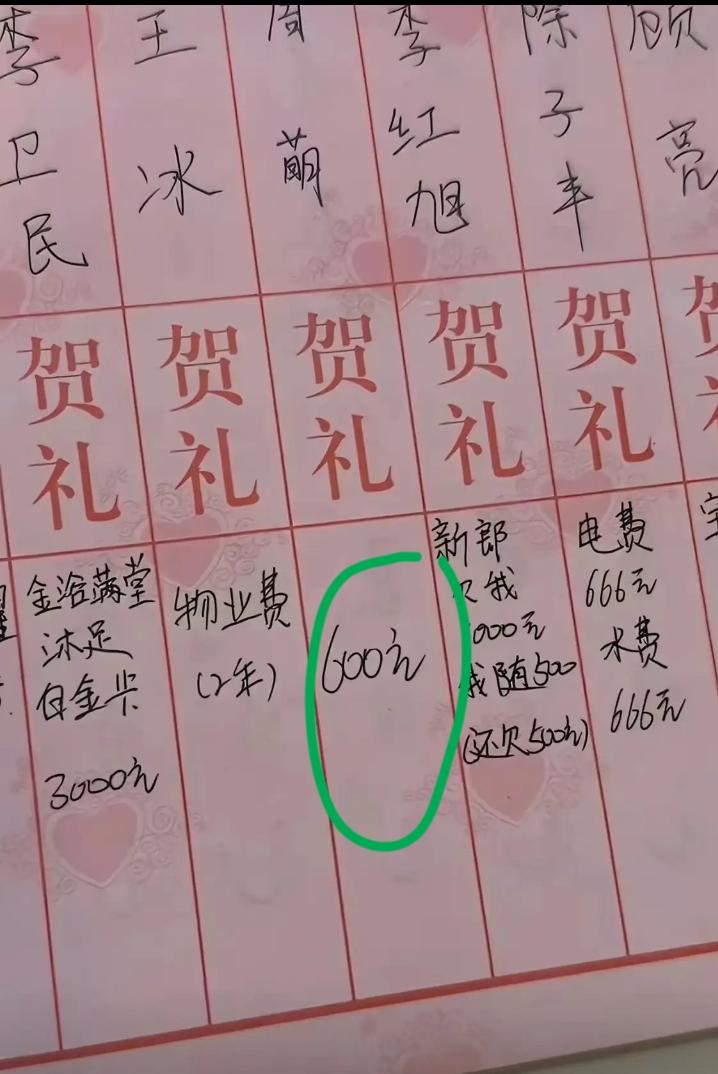 李卫民
王冰
周萌
李红旭
陈子丰
顾亮
贺礼
贺礼
贺礼
贺礼
贺礼
贺
金浴满堂
沐足
白金卡
3000元
物业费
(2年)
600元
新郎
欠我
1000元
我随500
(还欠500元)
电费
666元
水费
666元